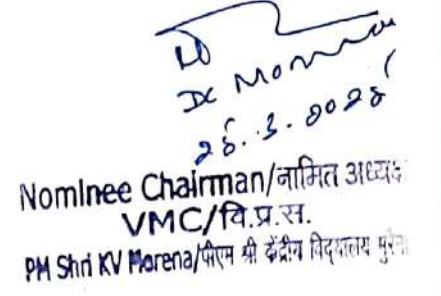 DC Morena
Nominee Chairman/नामित अध्यक्ष
VMC/वि.प्र.स.
PM Shri KV Morena/पीएम श्री केंद्रीय विद्यालय मुरैना